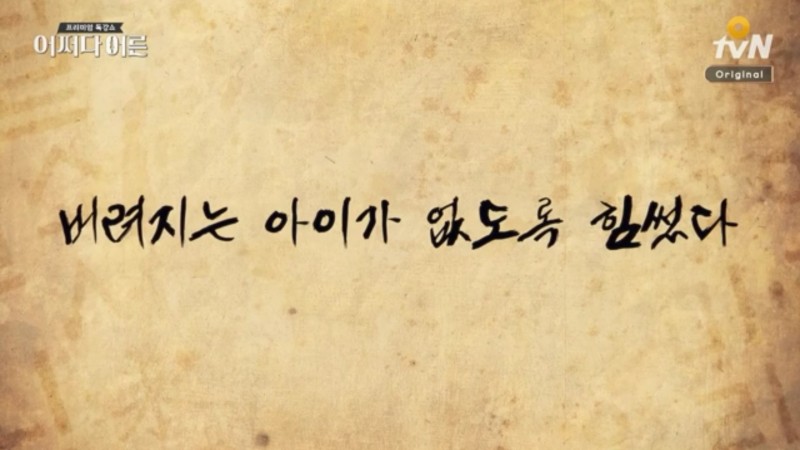 프리미엄 특강쇼
어쩌다 어른
tvN
Original
버려지는 아이가 없도록 힘썼다